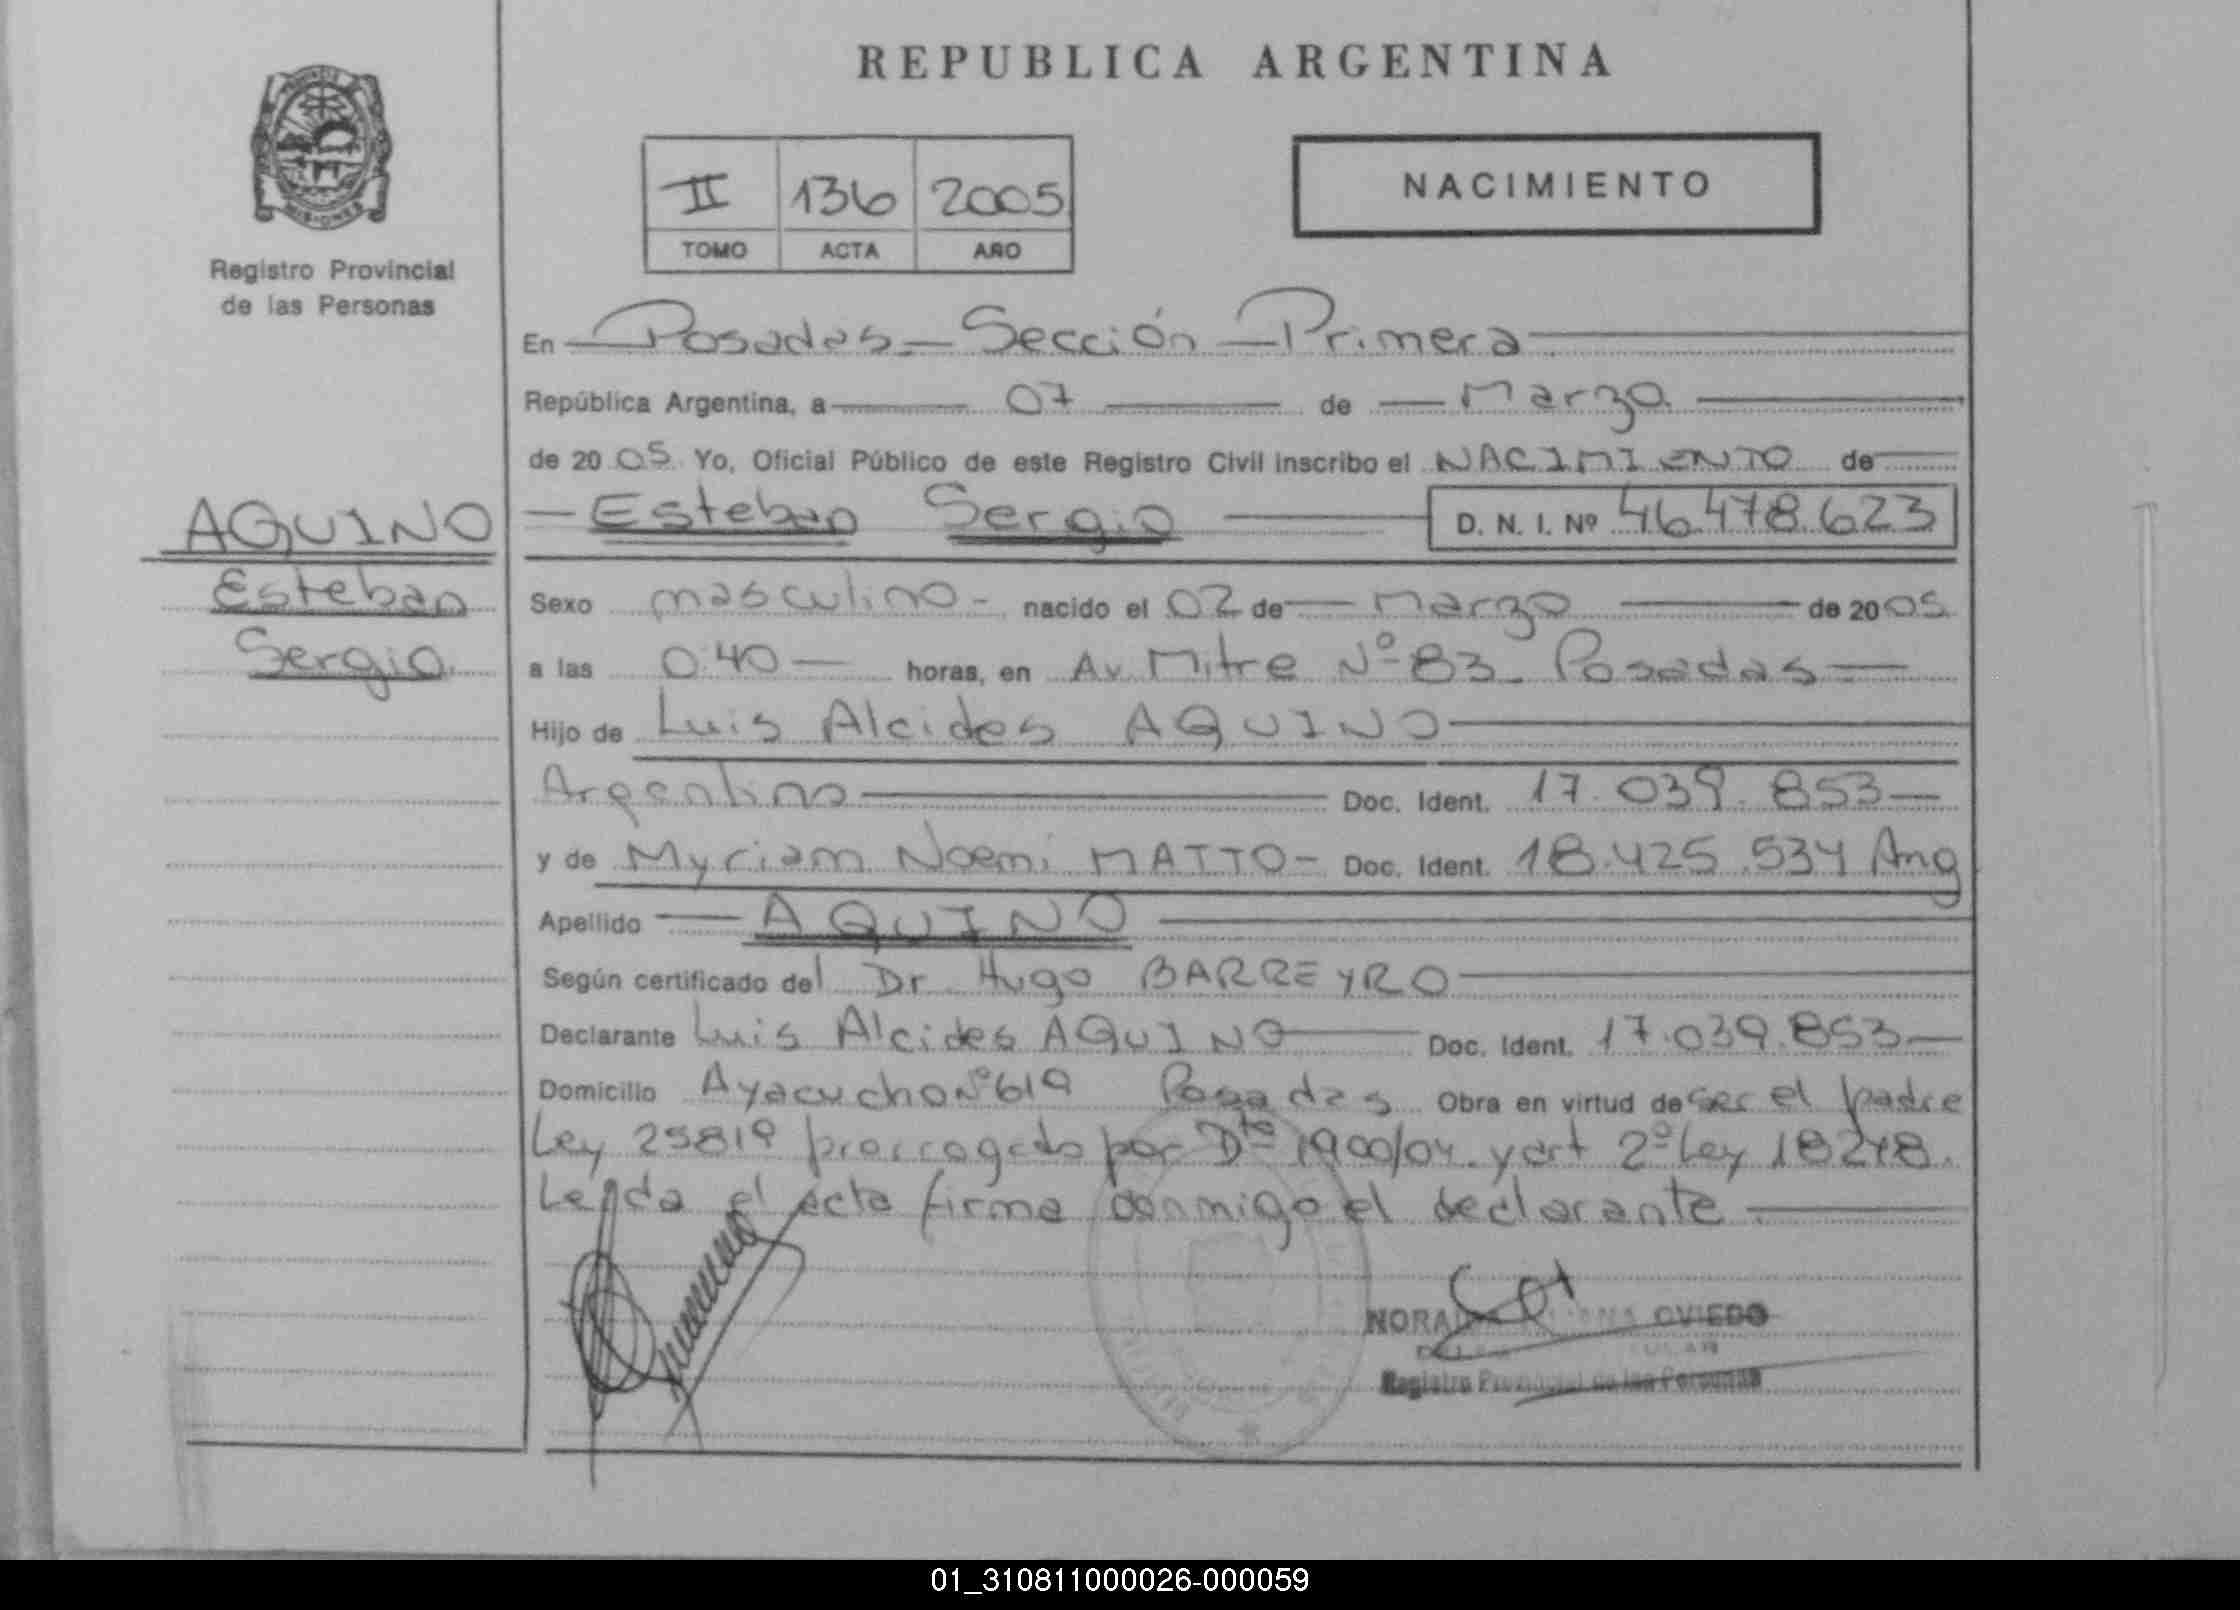 REPUBLICA ARGENTINA
MISIONES
Registro Provincial
de las Personas
II 136 2005
TOMO ACTA AÑO
NACIMIENTO
AQUINO
Esteban
Sergio
En Posadas - Sección Primera
República Argentina, a 07 de Marzo
de 2005 Yo, Oficial Público de este Registro Civil inscribo el NACIMIENTO de
Esteban Sergio D. N. I. Nº 46.478.623
Sexo masculino - nacido el 02 de Marzo de 2005
a las 0:40 horas, en Av. Mitre Nº 83 - Posadas
Hijo de Luis Alcides AQUINO
Argentino Doc. Ident. 17.039.853
y de Myriam Noemi MATTO - Doc. Ident. 18.425.534 Arg
Apellido AQUINO
Según certificado del Dr. Hugo BARREYRO
Declarante Luis Alcides AQUINO Doc. Ident. 17.039.853
Domicilio Ayacucho Nº 619 Posadas Obra en virtud de ser el padre
Ley 25819 prorrogado por Dto 1900/04. y art 2º Ley 18248.
Leída el acta firma conmigo el declarante
NORA OVIEDO
Registro Provincial de las Personas
01_310811000026-000059